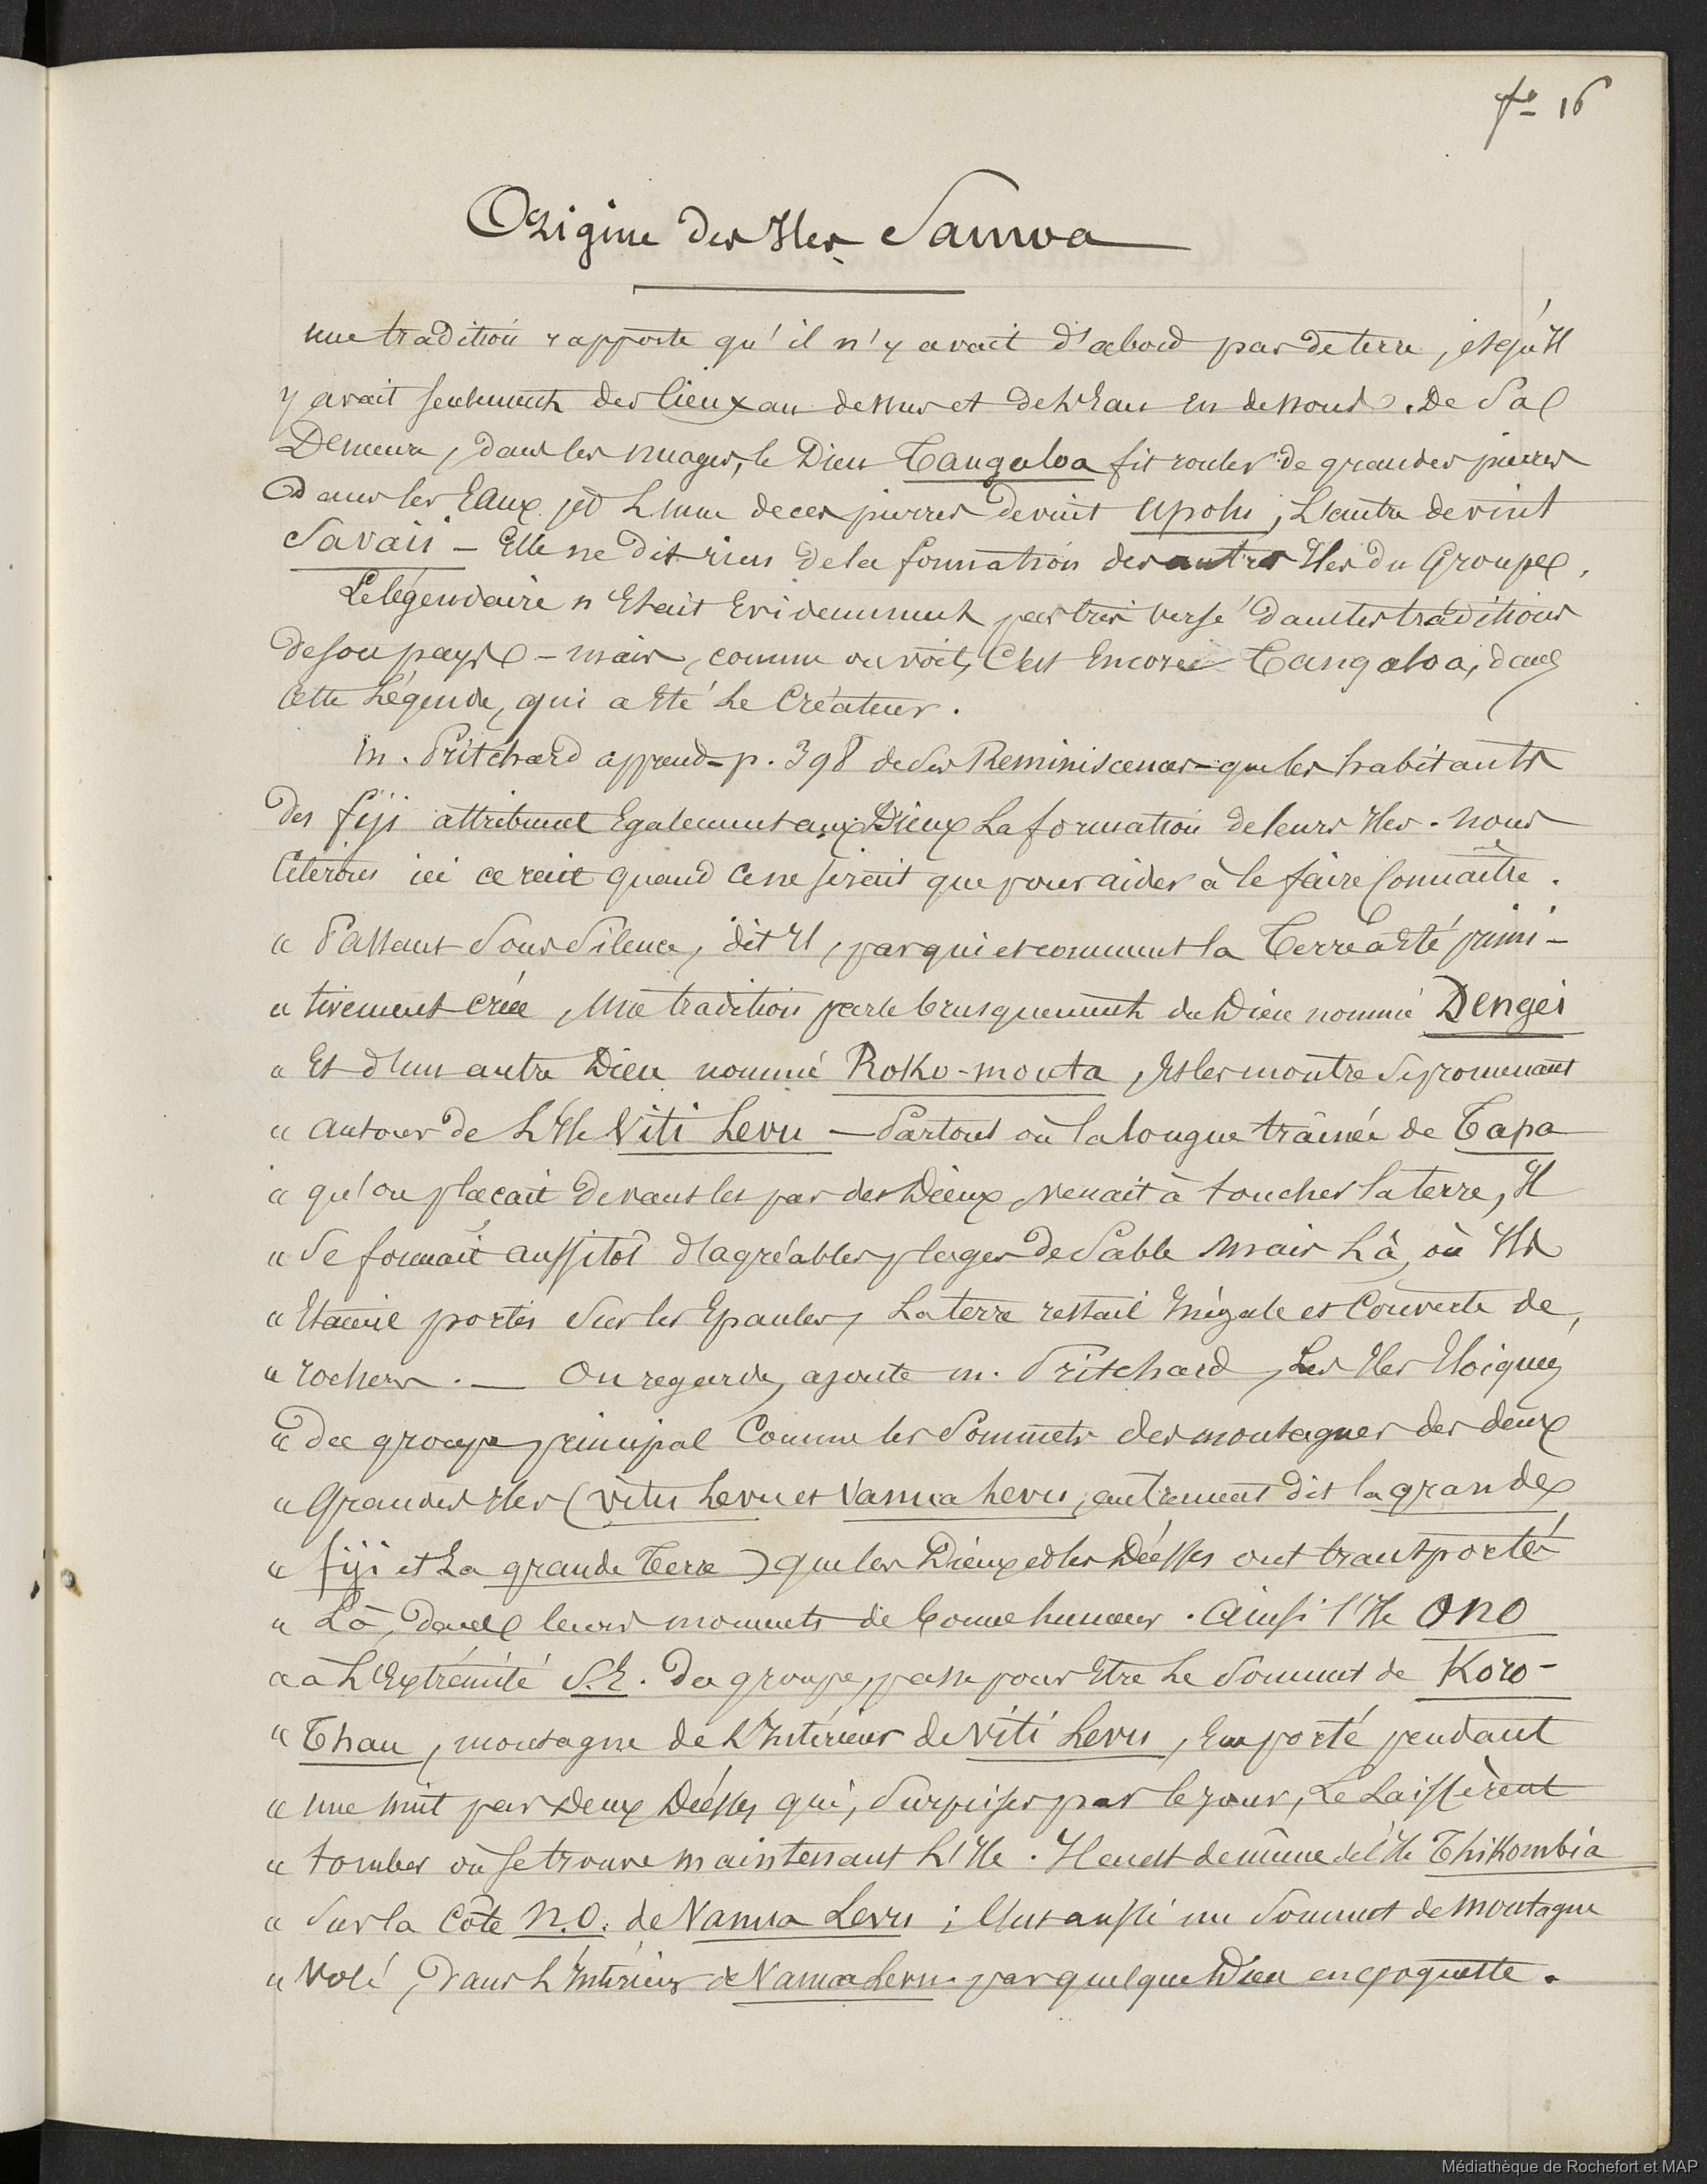 fo 16
Origine des Iles Samoa
une tradition rapporte qu'il n'y avait d'abord pas de terre, et qu'Il
y avait seulement des Cieux au dessus et de l'Eau en dessous. De Sa
Demeure, dans les nuages, le Dieu Tangaloa fit rouler de grandes pierres
dans les Eaux, L'une de ces pierres devint Upolu, L'autre devint
Savaii — Elle ne dit rien de la formation des autres Iles du Groupe,
Le légendaire n'Etait Evidemment pas très versé dans les traditions
de son pays — mais, comme on voit, C'est Encore Tangaloa, dans
cette Légende, qui a Eté Le Créateur.
M. Pritchard apprend - p. 398 de Ses Reminiscences - que les habitants
des fiji attribuent Egalement aux Dieux La formation de leurs Iles. nous
Citerons ici ce récit quand ce ne serait que pour aider à le faire Connaître.
" Passant Sous Silence, dit Il, par qui et comment la Terre a Eté primi-
" tivement créée, Une tradition parle brusquement du Dieu nommé Dengei
" Et d'un autre Dieu nommé Roko-mouta, Et les montre Se promenant
" autour de L'Ile Viti Levu — Partout où la longue traînée de Tapa
" qu'on plaçait devant les pas des Dieux, venait à toucher la terre, Il
" Se formait aussitôt d'agréables plages de Sable mais Là, où Ils
" Etaient portés Sur les Epaules, La terre restait Inégale et Couverte de,
" rochers. — On regarde, ajoute m. Pritchard, Les Iles Eloignées
" du groupe principal Comme les Sommets des montagnes des deux
" Grandes Iles (Viti Levu et Vanua Levu, autrement dit la grande
" fiji et La grande Terre) que les Dieux et les Déesses ont transporté
" Là, dans leurs moments de bonne humeur. Ainsi l'Ile Ono
" à L'Extrémité S.E. du groupe, passe pour Etre Le Sommet de Koro-
" Thau, montagne de L'Intérieur de Viti Levu, Emporté pendant
" une nuit par Deux Déesses qui, Surprises par le jour, Le Laissèrent
" tomber où se trouve maintenant L'Ile. Il en est de même de l'Ile Thikombia
" Sur la Côte N.O. de Vanua Levu ; C'est aussi un Sommet de Montagne
" Volé, dans L'Intérieur de Vanua Levu par quelque Dieu en goguette.
Médiathèque de Rochefort et MAP